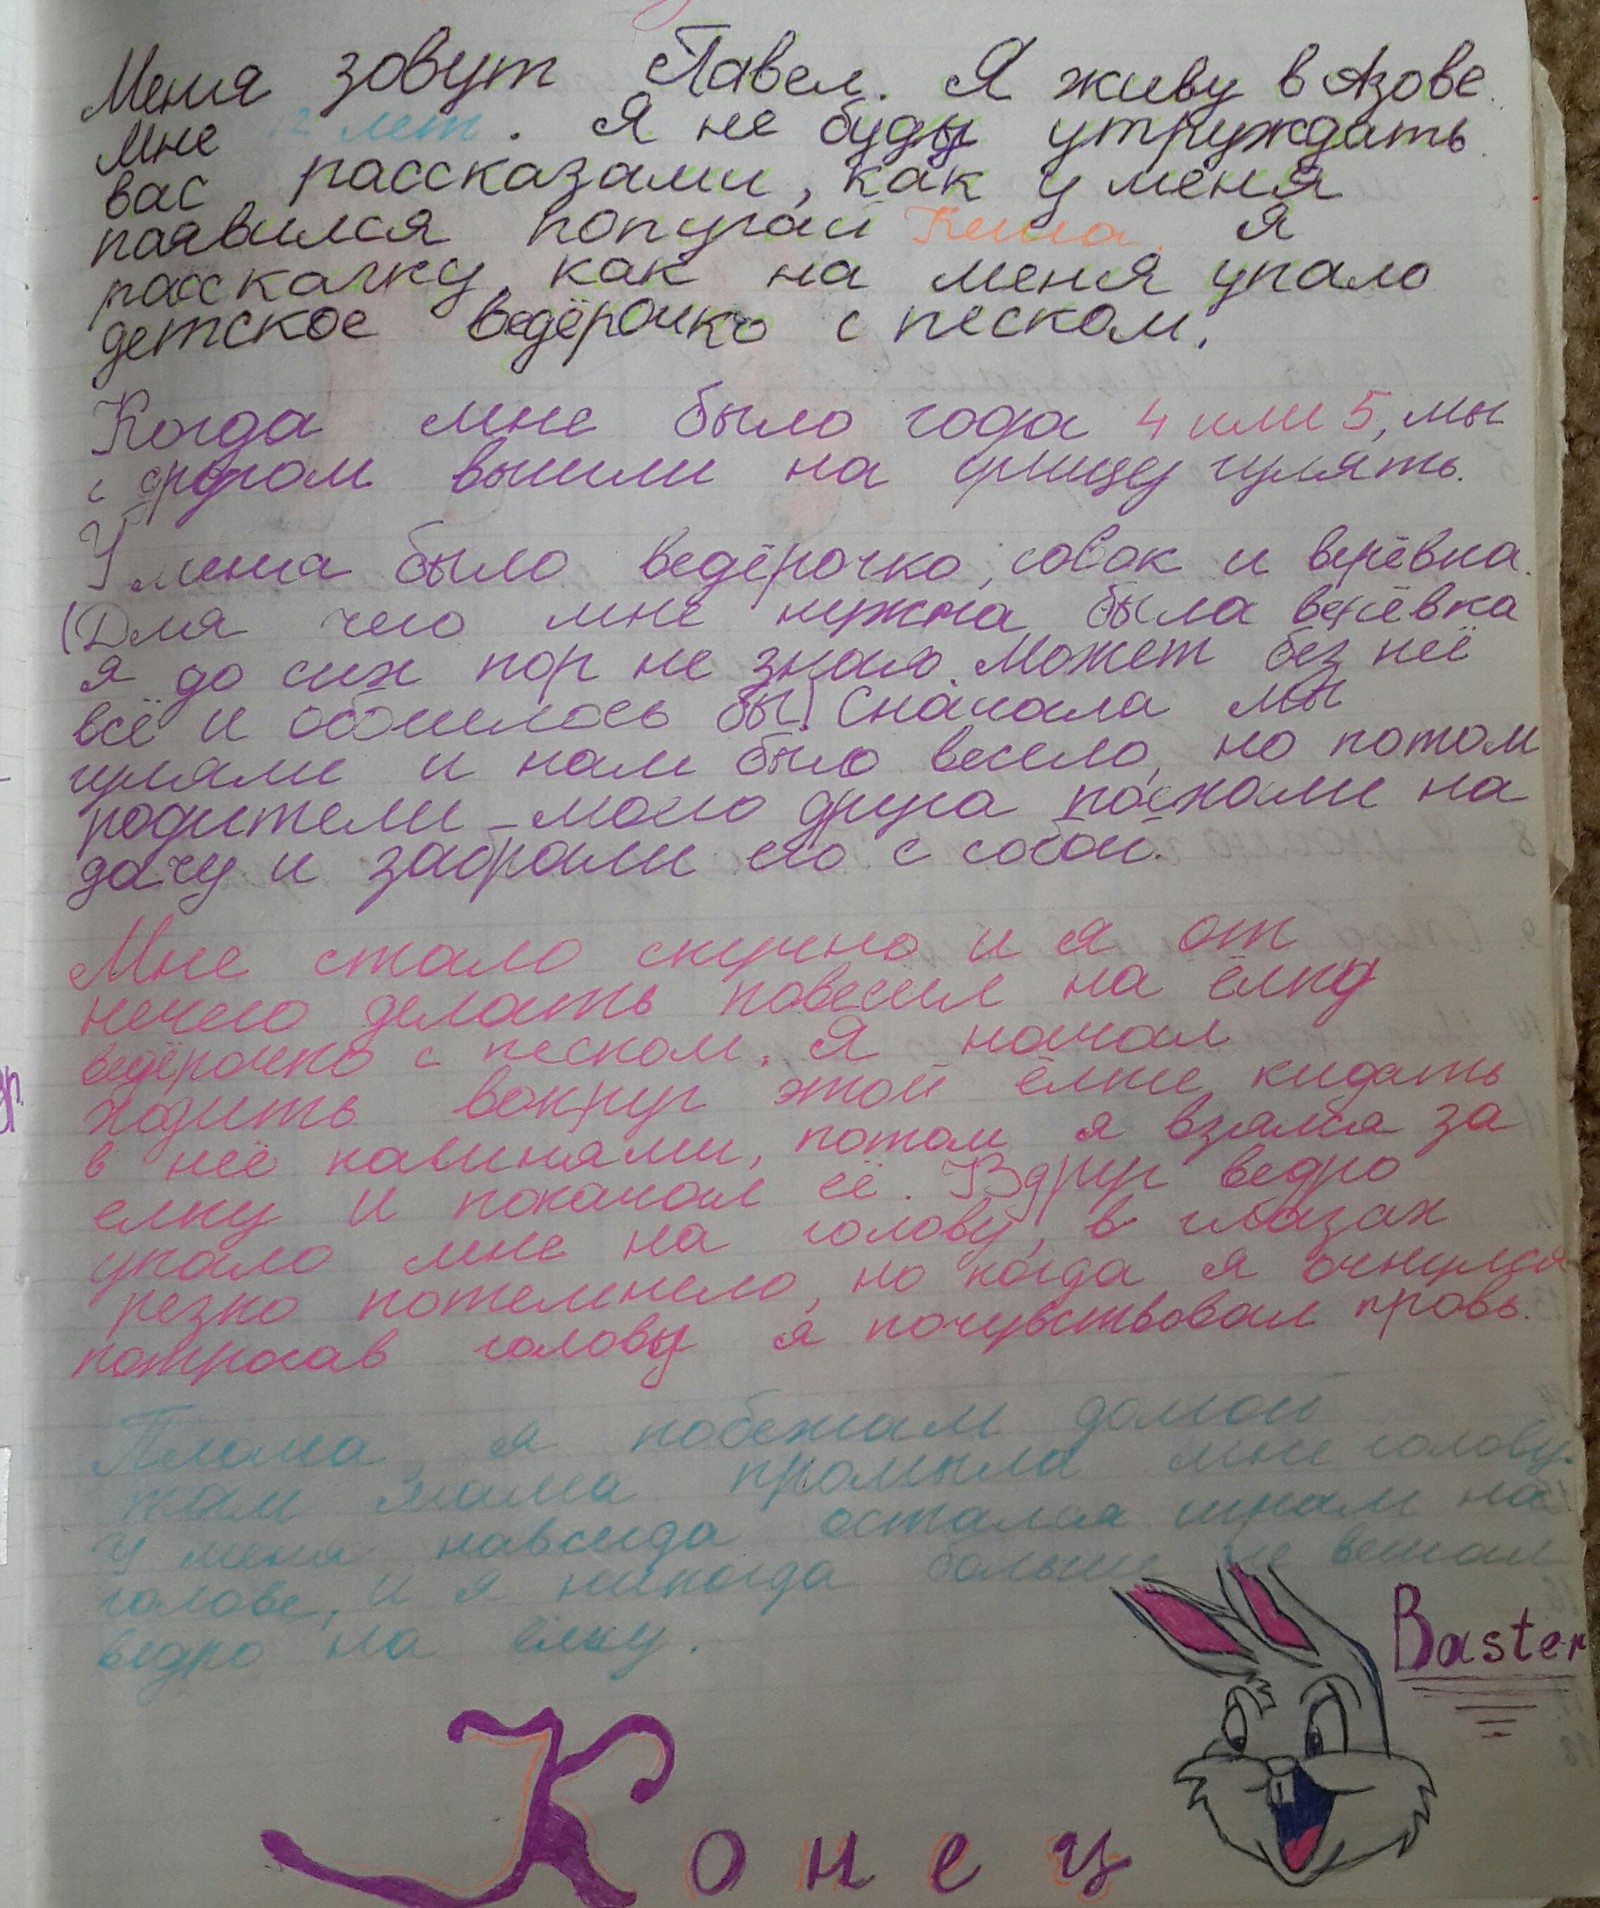 Меня зовут Павел. Я живу в Азове.
Мне 12 лет. Я не буду утруждать
вас рассказами, как у меня
паявился попугай Кеша. Я
расскажу, как на меня упало
детское ведёрочко с песком.
Когда мне было года 4 или 5, мы
с другом вышли на улицу гулять.
У меня было ведёрочко, совок и верёвка.
(Для чего мне нужна была верёвка
я до сих пор не знаю. Может без неё
всё и обошлось бы) Сначала мы
гуляли и нам было весело, но потом
родители моего друга поехали на
дачу и забрали его с собой.
Мне стало скучно и я от
нечего делать повесил на ёлку
ведёрочко с песком. Я начал
ходить вокруг этой ёлки, кидать
в неё камнями, потом я взялся за
елку и покачал её. Вдруг ведро
упало мне на голову, в глазах
резко потемнело, но когда я очнулся
потрогав голову я почувствовал кровь.
я побежал домой
там мама промыла мне голову.
У меня навсегда остался шрам на
голове, и я никогда больше не вешал
ведро на ёлку.
Baster
Конец